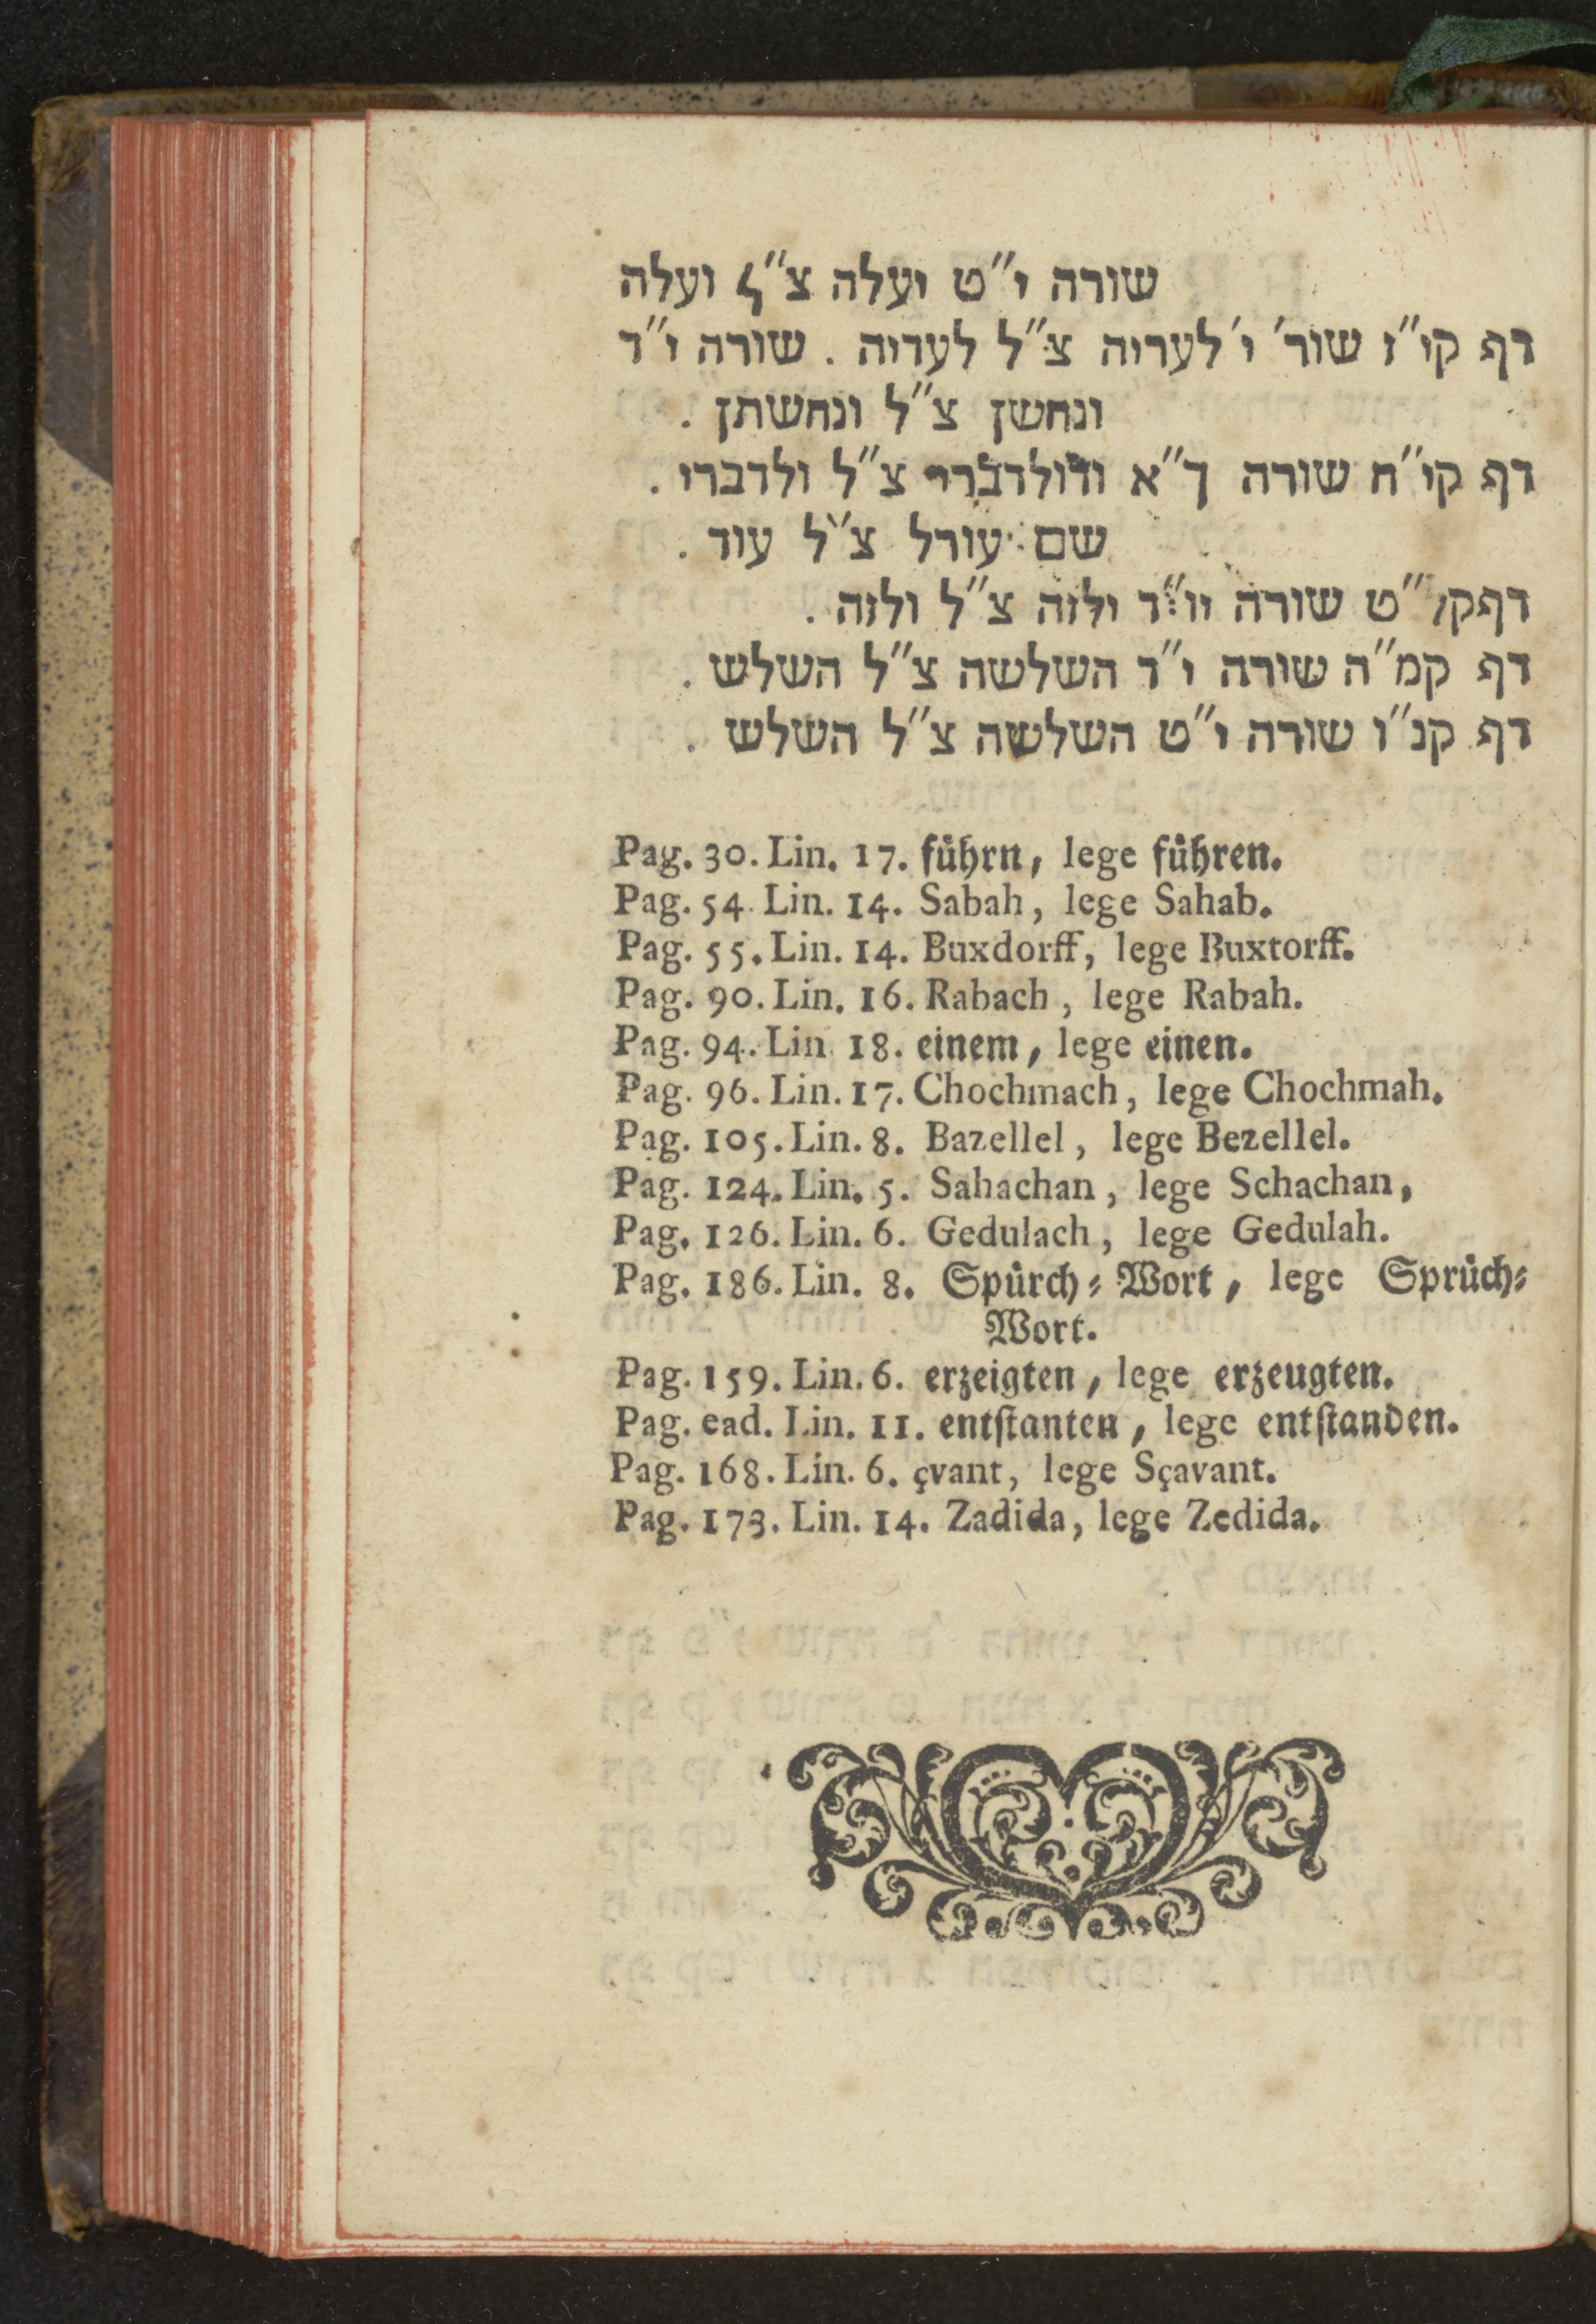 שורה י״ט יעלה צ״ל ועלה
דף קי״ז שור׳ י׳ לערוה צ״ל לעדוה . שורה י״ד
ונחשן צ״ל ונחשתן .
דף קי״ח שורה ך״א ודולדברי צ״ל ולדברי .
שם עורל צ״ל עוד .
דף קי״ט שורה יו״ד ולוה צ״ל ולזה .
דף קמ״ה שורה י״ד השלשה צ״ל השלש .
דף קנ״ו שורה י״ט השלשה צ״ל השלש .
Pag. 30. Lin. 17. führn, lege führen.
Pag. 54. Lin. 14. Sabah, lege Sahab.
Pag. 55. Lin. 14. Buxdorff, lege Buxtorff.
Pag. 90. Lin. 16. Rabach, lege Rabah.
Pag. 94. Lin 18. einem, lege einen.
Pag. 96. Lin. 17. Chochmach, lege Chochmah.
Pag. 105. Lin. 8. Bazellel, lege Bezellel.
Pag. 124. Lin. 5. Sahachan, lege Schachan,
Pag. 126. Lin. 6. Gedulach, lege Gedulah.
Pag. 186. Lin. 8. Spürch-Wort, lege Sprüch-
Wort.
Pag. 159. Lin. 6. erzeigten, lege erzeugten.
Pag. ead. Lin. 11. entstanten, lege entstanden.
Pag. 168. Lin. 6. çvant, lege Sçavant.
Pag. 173. Lin. 14. Zadida, lege Zedida.